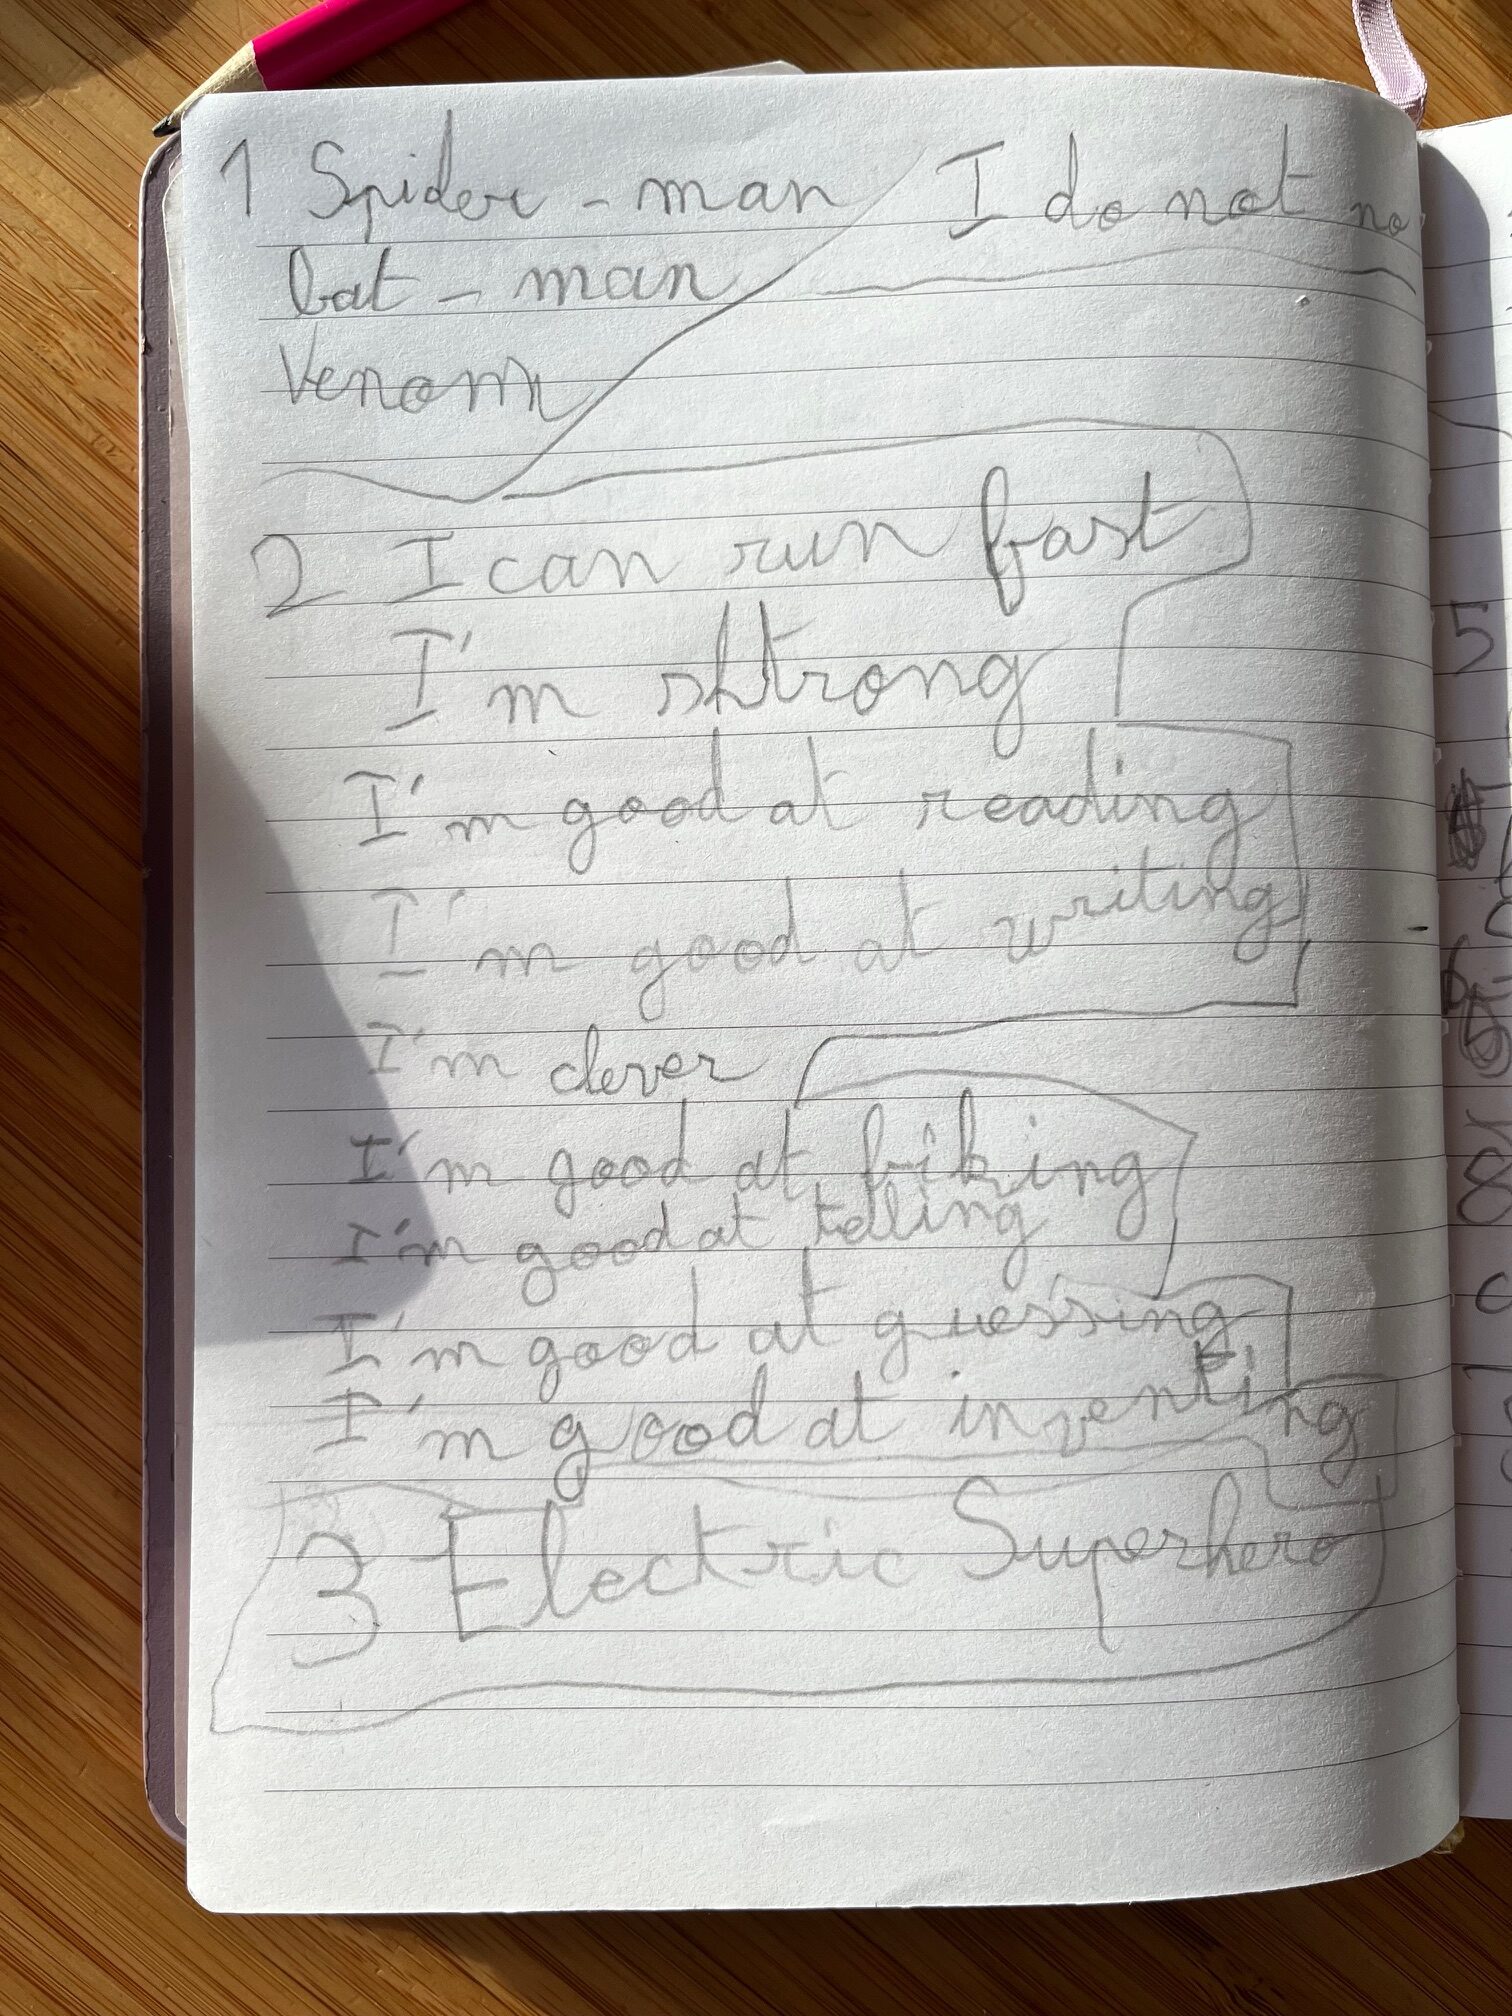 1 Spider-man I do not no
bat-man
Venom
2 I can run fast
I'm shtrong
I'm good at reading
I'm good at writing
I'm clever
I'm good at biking
I'm good at telling
I'm good at guessing
I'm good at inventing
3 Electric Superhero
5
8